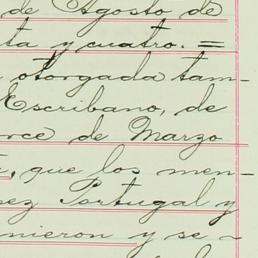 de Agosto de
ta y cuatro. =
otorgada tam-
Escribano, de
rce de Marzo
, que los men-
ez Portugal y
nieron y se-